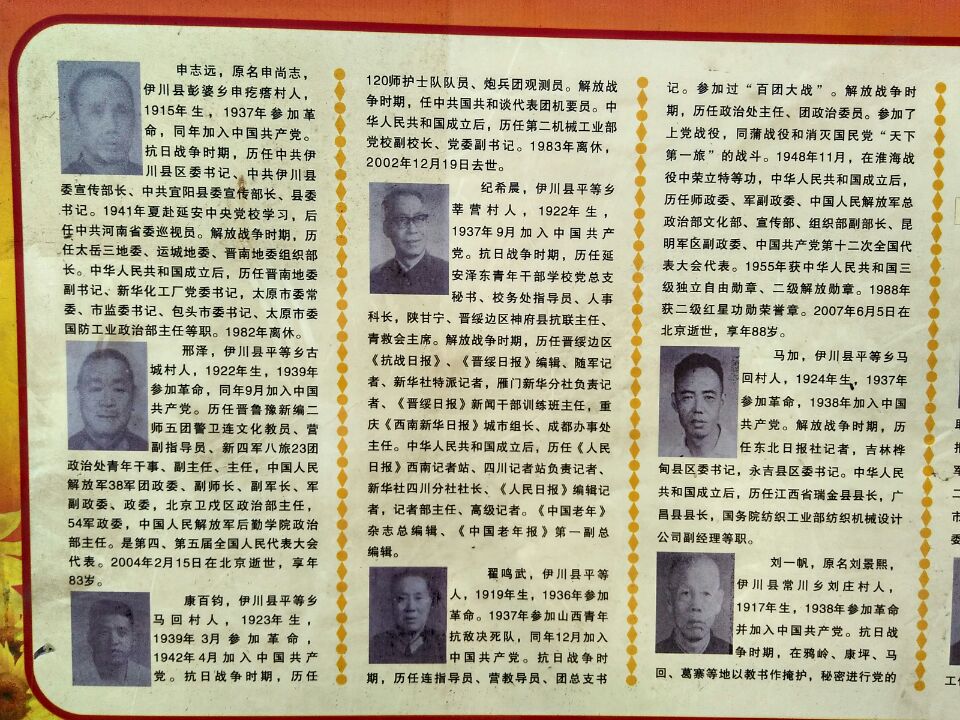 申志远，原名申尚志，
伊川县彭婆乡申疙瘩村人，
1915年生，1937年参加革
命，同年加入中国共产党。
抗日战争时期，历任中共伊
川县区委书记、中共伊川县
委宣传部长、中共宜阳县委宣传部长、县委
书记。1941年夏赴延安中央党校学习，后
任中共河南省委巡视员。解放战争时期，历
任太岳三地委、运城地委、晋南地委组织部
长。中华人民共和国成立后，历任晋南地委
副书记、新华化工厂党委书记，太原市委常
委、市监委书记、包头市委书记、太原市委
国防工业政治部主任等职。1982年离休。
邢泽，伊川县平等乡古
城村人，1922年生，1939年
参加革命，同年9月加入中国
共产党。历任晋鲁豫新编二
师五团警卫连文化教员、营
副指导员、新四军八旅23团
政治处青年干事、副主任、主任，中国人民
解放军38军团政委、副师长、副军长、军
副政委、政委，北京卫戍区政治部主任，
54军政委，中国人民解放军后勤学院政治
部主任。是第四、第五届全国人民代表大会
代表。2004年2月15日在北京逝世，享年
83岁。
康百钧，伊川县平等乡
马回村人，1923年生，
1939年3月参加革命，
1942年4月加入中国共产
党。抗日战争时期，历任
120师护士队队员、炮兵团观测员。解放战
争时期，任中共国共和谈代表团机要员。中
华人民共和国成立后，历任第二机械工业部
党校副校长、党委副书记。1983年离休，
2002年12月19日去世。
纪希晨，伊川县平等乡
莘营村人，1922年生，
1937年9月加入中国共产
党。抗日战争时期，历任延
安泽东青年干部学校党总支
秘书、校务处指导员、人事
科长，陕甘宁、晋绥边区神府县抗联主任、
青救会主席。解放战争时期，历任晋绥边区
《抗战日报》、《晋绥日报》编辑、随军记
者、新华社特派记者，雁门新华分社负责记
者、《晋绥日报》新闻干部训练班主任，重
庆《西南新华日报》城市组长、成都办事处
主任。中华人民共和国成立后，历任《人民
日报》西南记者站、四川记者站负责记者、
新华社四川分社社长、《人民日报》编辑记
者，记者部主任、高级记者。《中国老年》
杂志总编辑、《中国老年报》第一副总
编辑。
翟鸣武，伊川县平等
人，1919年生，1936年参加
革命。1937年参加山西青年
抗敌决死队，同年12月加入
中国共产党。抗日战争时
期，历任连指导员、营教导员、团总支书
记。参加过“百团大战”。解放战争时
期，历任政治处主任、团政治委员。参加了
上党战役，同蒲战役和消灭国民党“天下
第一旅”的战斗。1948年11月，在淮海战
役中荣立特等功，中华人民共和国成立后，
历任师政委、军副政委、中国人民解放军总
政治部文化部、宣传部、组织部副部长、昆
明军区副政委、中国共产党第十二次全国代
表大会代表。1955年获中华人民共和国三
级独立自由勋章、二级解放勋章。1988年
获二级红星功勋荣誉章。2007年6月5日在
北京逝世，享年88岁。
马加，伊川县平等乡马
回村人，1924年生，1937年
参加革命，1938年加入中国
共产党。解放战争时期，历
任东北日报社记者，吉林桦
甸县区委书记，永吉县区委书记。中华人民
共和国成立后，历任江西省瑞金县县长，广
昌县县长，国务院纺织工业部纺织机械设计
公司副经理等职。
刘一帆，原名刘景熙，
伊川县常川乡刘庄村人，
1917年生，1938年参加革命
并加入中国共产党。抗日战
争时期，在鸦岭、康坪、马
回、葛寨等地以教书作掩护，秘密进行党的